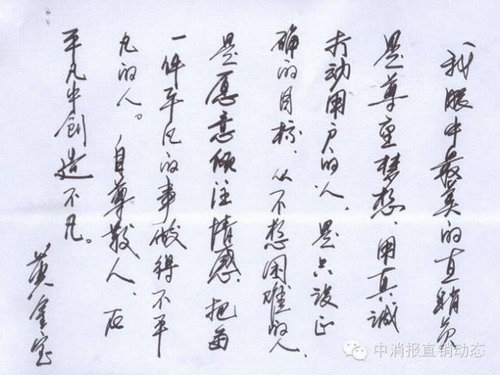 “我眼中最美的直销员
是尊重梦想,用真诚
打动用户的人,是只设正
确的目标,从不想困难的人,
是愿意倾注情感,把每
一件平凡的事做得不平
凡的人。自尊敬人,在
平凡中创造不凡。
黄金宝
中消报直销动态